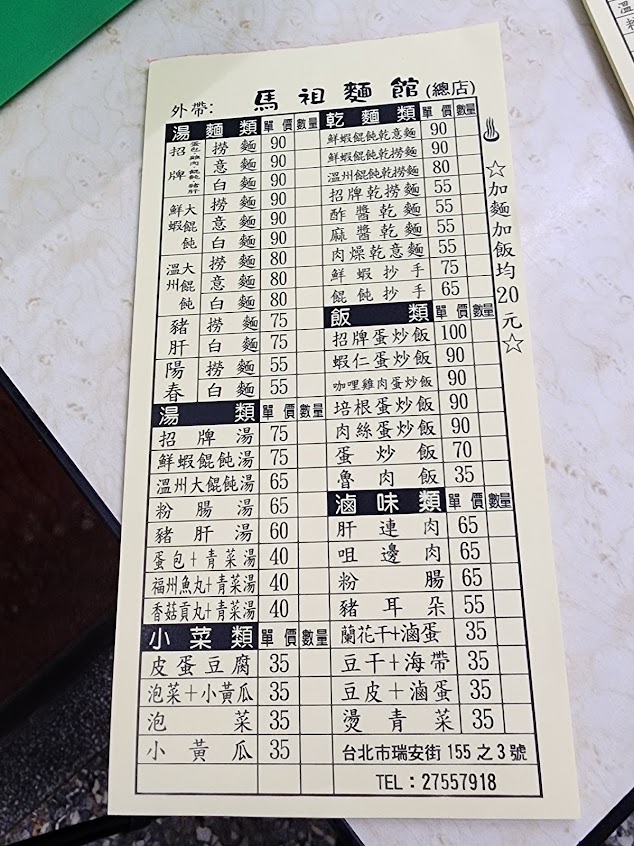 外帶: 馬祖麵館(總店)
湯麵類 單價 數量
招牌 蛋包、雞肉、餛飩、豬肝 撈麵 90
意麵 90
白麵 90
鮮蝦大餛飩 撈麵 90
意麵 90
白麵 90
溫州大餛飩 撈麵 80
意麵 80
白麵 80
豬肝 撈麵 75
白麵 75
陽春 撈麵 55
白麵 55
湯類 單價 數量
招牌湯 75
鮮蝦餛飩湯 75
溫州大餛飩湯 65
粉腸湯 65
豬肝湯 60
蛋包+青菜湯 40
福州魚丸+青菜湯 40
香菇貢丸+青菜湯 40
小菜類 單價 數量
皮蛋豆腐 35
泡菜+小黃瓜 35
泡菜 35
小黃瓜 35
乾麵類 單價 數量
鮮蝦餛飩乾意麵 90
鮮蝦餛飩乾撈麵 90
溫州餛飩乾撈麵 80
招牌乾撈麵 55
酢醬乾麵 55
麻醬乾麵 55
肉燥乾意麵 55
鮮蝦抄手 75
餛飩抄手 65
飯類 單價 數量
招牌蛋炒飯 100
蝦仁蛋炒飯 90
咖哩雞肉蛋炒飯 90
培根蛋炒飯 90
肉絲蛋炒飯 90
蛋炒飯 70
魯肉飯 35
滷味類 單價 數量
肝連肉 65
咀邊肉 65
粉腸 65
豬耳朵 55
蘭花干+滷蛋 35
豆干+海帶 35
豆皮+滷蛋 35
燙青菜 35
台北市瑞安街155之3號
TEL:27557918
☆加麵加飯均20元☆